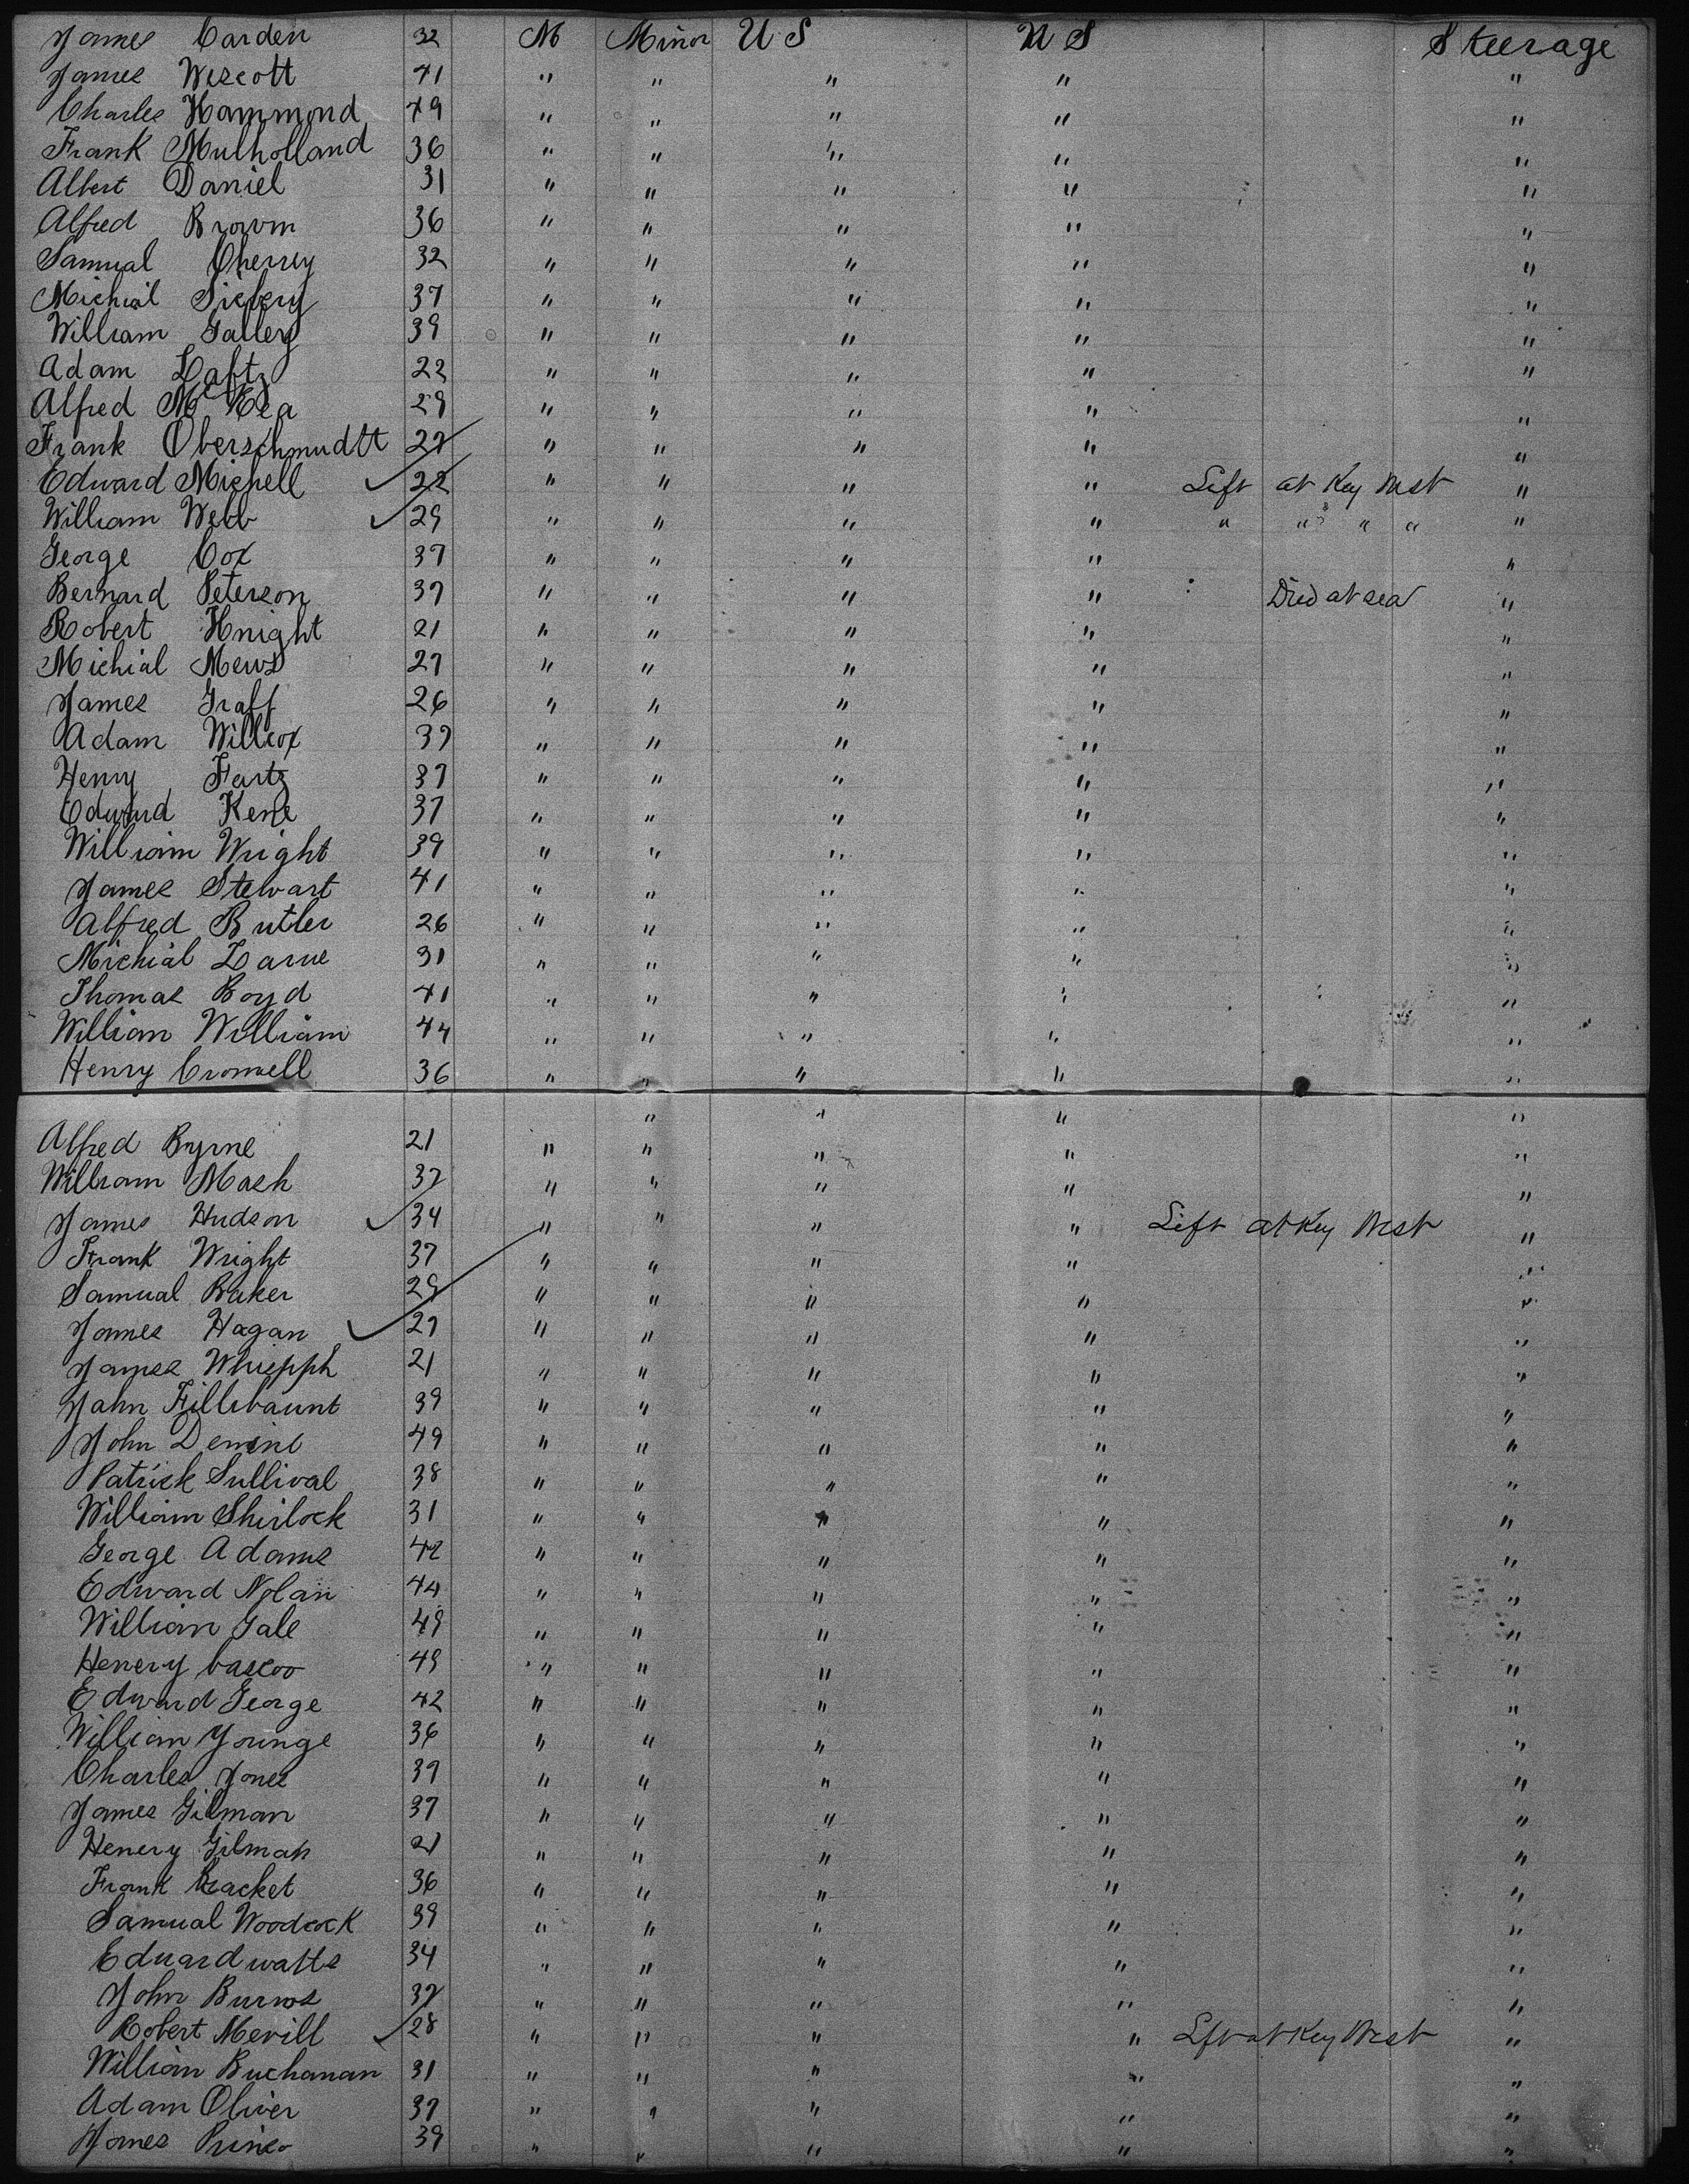 James Carden 32 M Minor U S U S Steerage
James Wescott 41 " " " " "
Charles Hammond 49 " " " " "
Frank Mulholland 36 " " " " "
Albert Daniel 31 " " " " "
Alfred Browm 36 " " " " "
Samual Cherrey 32 " " " " "
Michial 37 " " " " "
William Gallery 39 " " " " "
Adam Laftz 22 " " " " "
Alfred McKea 29 " " " " "
Frank Oberschmudtt 27 " " " " "
Edward Michell 22 " " " " Left at Key West "
William Webb 29 " " " " " " " " "
George Cox 37 " " " " "
Bernard Peterson 37 " " " " Died at sea "
Robert Knight 21 " " " " "
Michial Mews 27 " " " " "
James Graff 26 " " " " "
Adam Willcox 37 " " " " "
Henry Fartz 37 " " " " "
Edward Kene 37 " " " " "
William Wright 39 " " " " "
James Stewart 41 " " " " "
Alfred Butler 26 " " " " "
Michial Larue 31 " " " " "
Thomas Boyd 41 " " " " "
William William 44 " " " " "
Henry Cromwell 36 " " " " "
" " " "
Alfred Byrne 21 " " " " "
William Mash 37 " " " " "
James Hudson 34 " " " " Left at Key West "
Frank Wright 37 " " " " "
Samual Baker 29 " " " " "
James Hagan 27 " " " " "
James Whipph 21 " " " " "
John Fillibaunt 39 " " " " "
John Demine 49 " " " " "
Patrick Sullival 38 " " " " "
William Shirlock 31 " " " " "
George Adams 42 " " " " "
Edward Nolan 44 " " " " "
William Gale 49 " " " " "
Henery Cascoo 49 " " " " "
Edward George 42 " " " " "
William Younge 36 " " " " "
Charles Jones 39 " " " " "
James Gilman 37 " " " " "
Henery Gilman 21 " " " " "
Frank Bracket 36 " " " " "
Samual Woodcock 39 " " " " "
Edward watts 34 " " " " "
John Burns 37 " " " " "
Robert Merill 28 " " " " Left at Key West "
William Buchanan 31 " " " " "
Adam Oliver 37 " " " " "
James Prince 39 " " " " "